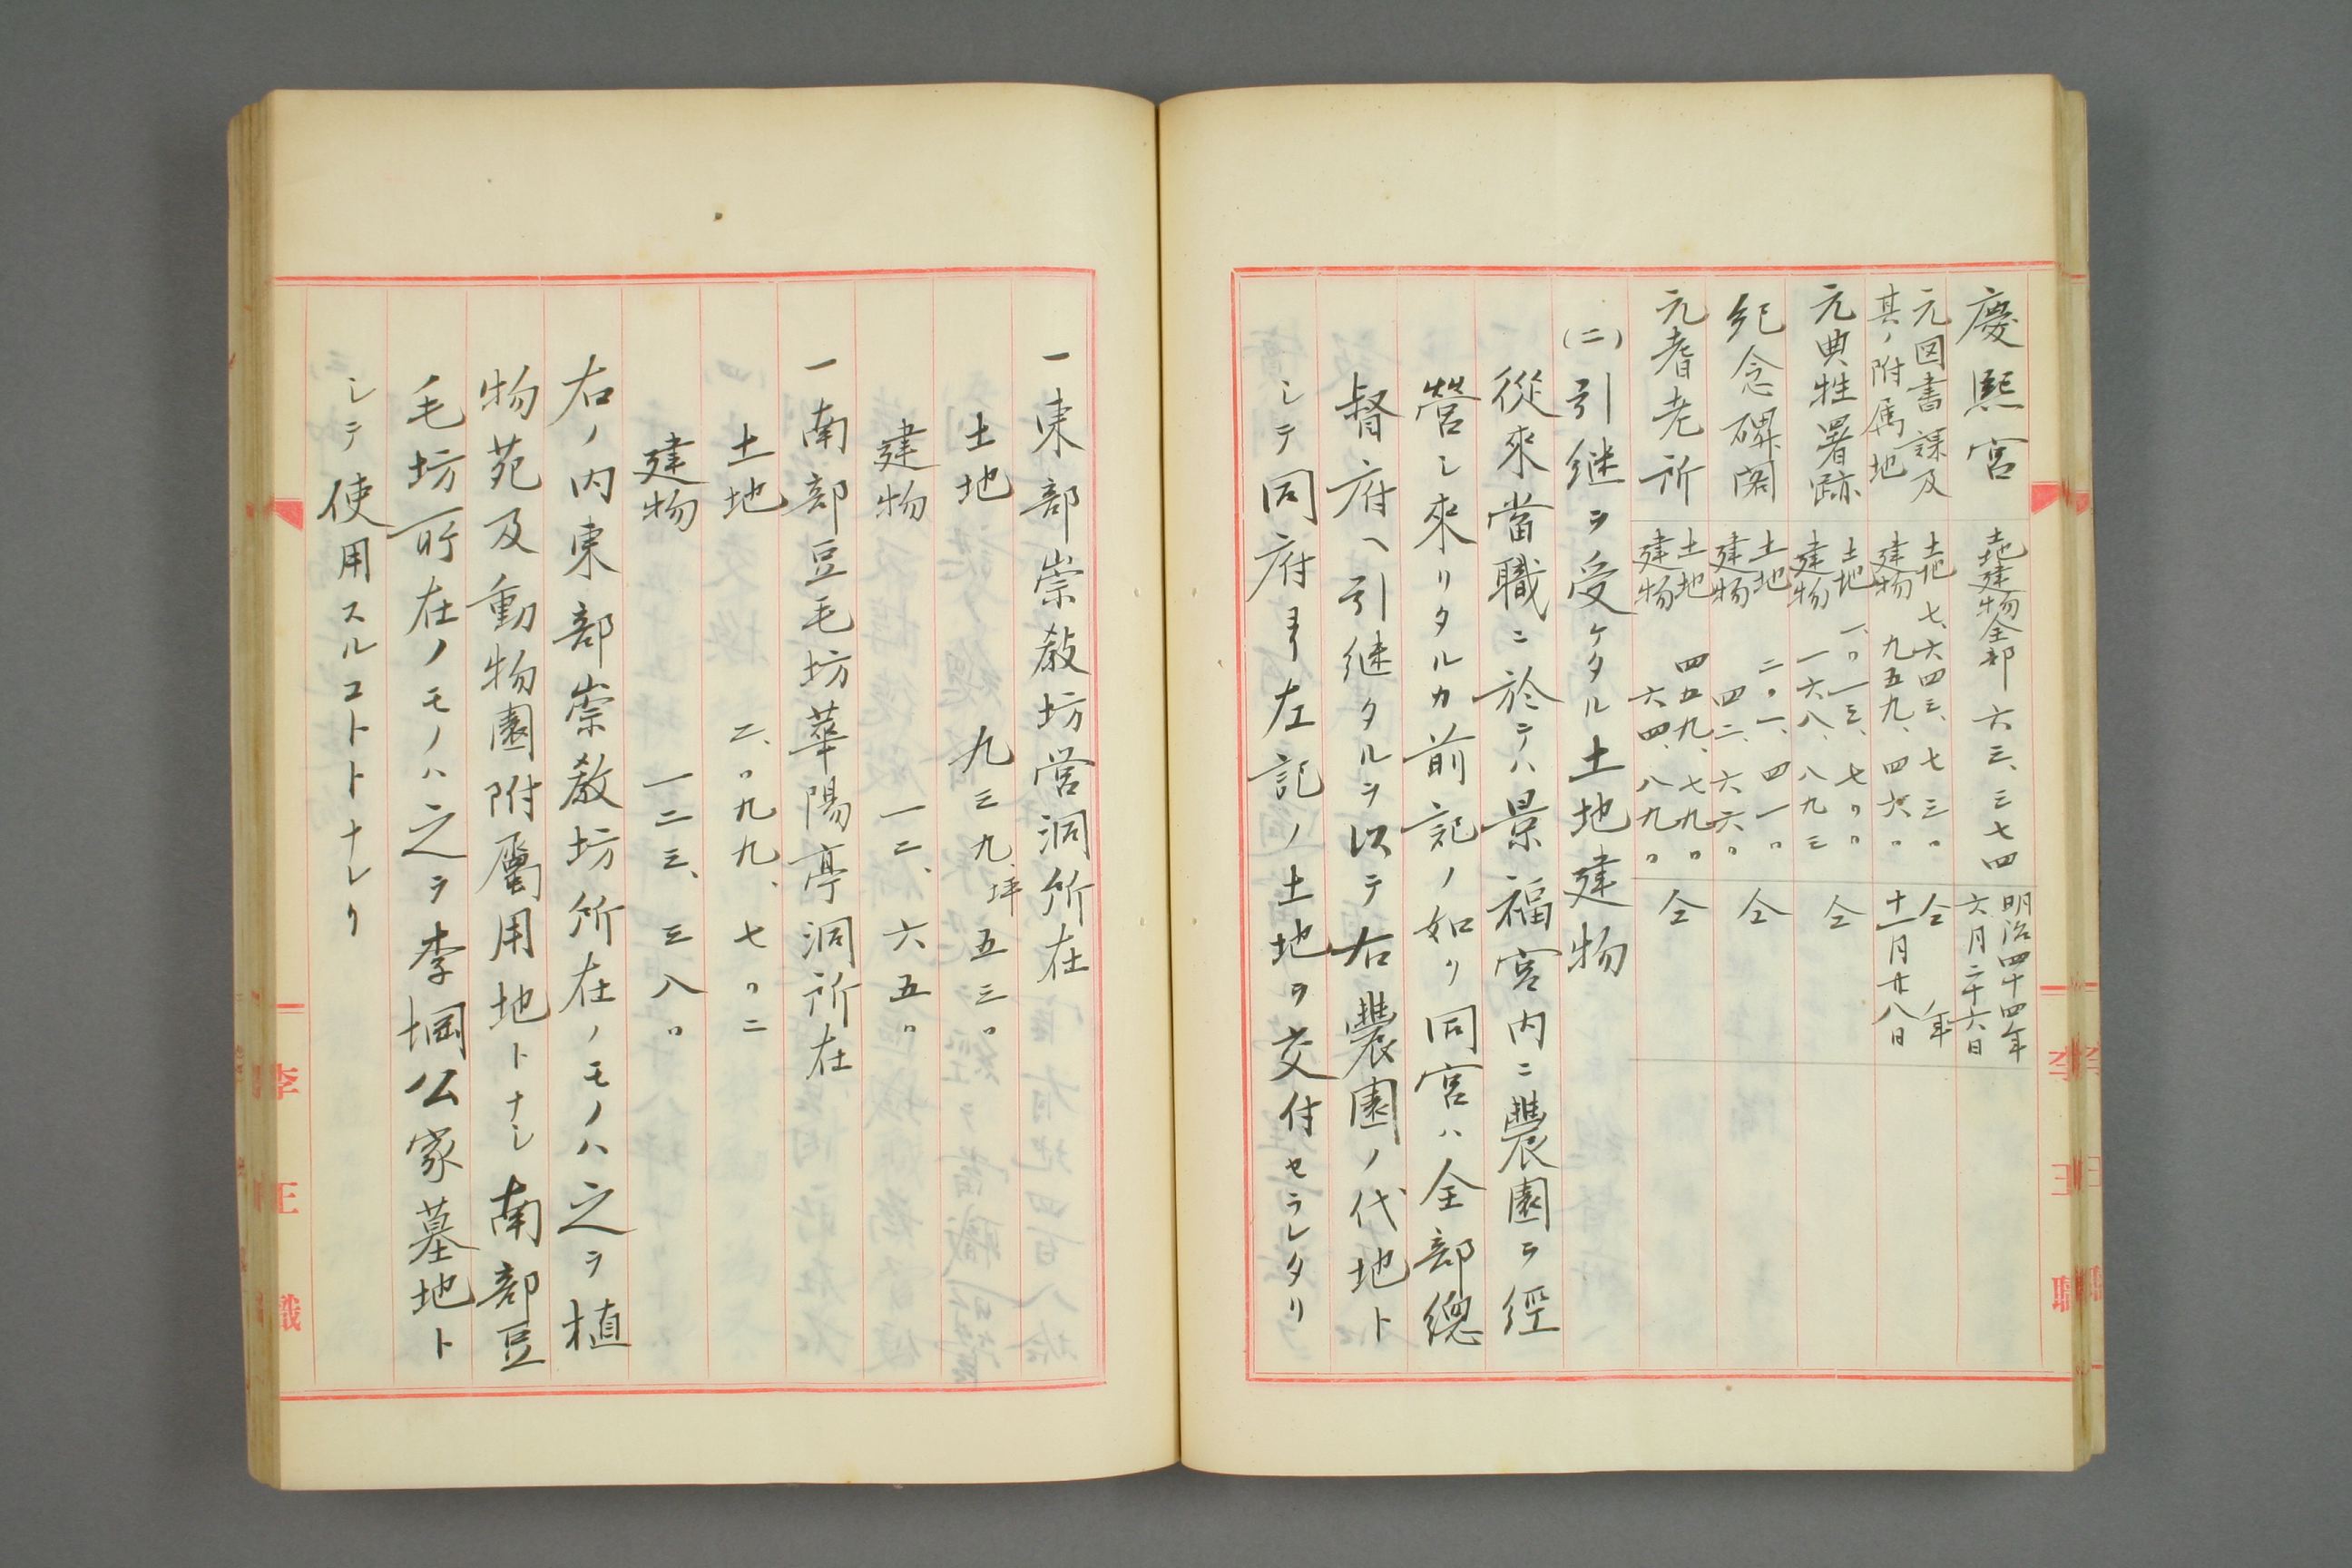 慶熙宮 土地建物全部 六三、三七四 明治四十四年六月二十六日
元図書課及其ノ附属地 土地 七、六四三、七三〇 建物 九五九、四六〇 仝年十一月廿八日
元典牲署跡 土地 一、〇一三、七〇〇 建物 一六八、八九三 仝
紀念碑閣 土地 二〇一、四一〇 建物 四二、六六〇 仝
元耆老所 土地 四五九、七九〇 建物 六四、八九〇 仝
(二)引継ヲ受ケタル土地建物
從來當職ニ於テハ景福宮内ニ農園ヲ經
營シ來リタルカ前記ノ如ク同宮ハ全部總
督府ヘ引継タルヲ以テ右農園ノ代地ト
シテ同府ヨリ左記ノ土地ヲ交付セラレタリ
李王職
一東部崇敎坊営洞所在
土地 九三九、坪五三〇
建物 一二、六五〇
一南部豆毛坊華陽亭洞所在
土地 二、〇九九、七〇二
建物 一二三、三八〇
右ノ内東部崇敎坊所在ノモノハ之ヲ植
物苑及動物園附屬用地トナシ南部豆
毛坊所在ノモノハ之ヲ李堈公家墓地ト
シテ使用スルコトトナレリ
李王職